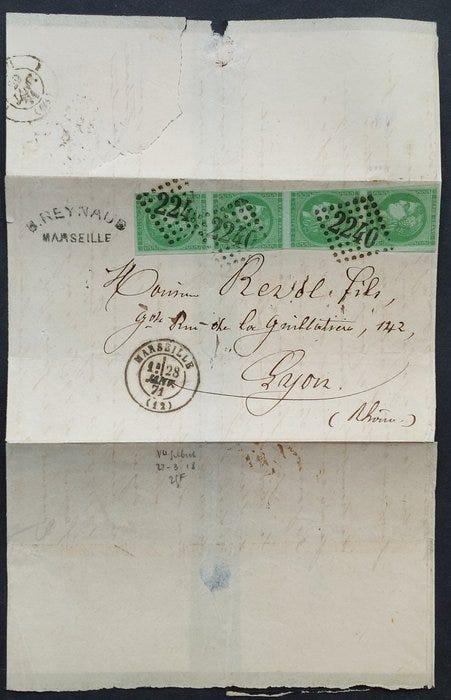 B. REYNAUD
MARSEILLE
2240
2240
2240
Monsieur Revol fils,
Gde Rue de la Guillotière, 142,
Lyon.
(Rhône.)
MARSEILLE
28
JANV.
71
(12)
22-3 18
25F